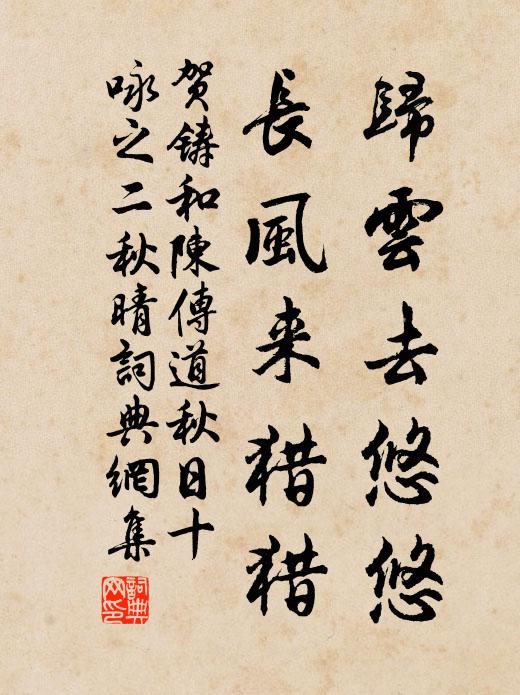 歸雲去悠悠
長風来猎猎
贺鑄和陳傳道秋日十
咏之二秋晴詞典網集
詞典网印